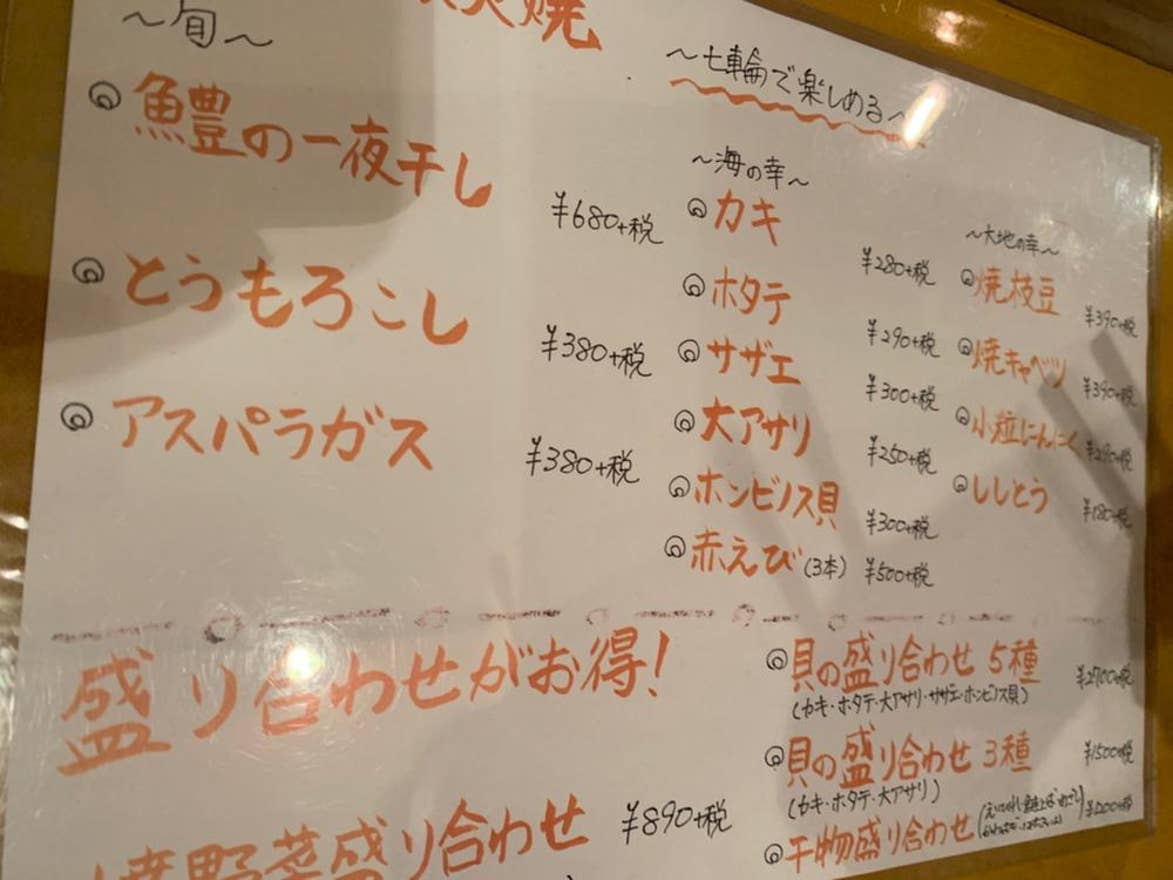 焼
～旬～
◎鱧の一夜干し
¥680+税
◎とうもろこし
¥380+税
◎アスパラガス
¥380+税
～七輪で楽しめる～
～海の幸～
◎カキ
¥280+税
◎ホタテ
¥290+税
◎サザエ
¥300+税
◎大アサリ
¥250+税
◎ホンビノス貝
¥300+税
◎赤えび(3本) ¥500+税
～大地の幸～
◎焼枝豆
¥390+税
◎焼キャベツ
¥390+税
◎小粒にんにく ¥290+税
◎ししとう
¥180+税
盛り合わせがお得!
焼野菜盛り合わせ ¥890+税
◎貝の盛り合わせ 5種 ¥2700+税
(カキ・ホタテ・大アサリ・サザエ・ホンビノス貝)
◎貝の盛り合わせ 3種 ¥1500+税
(カキ・ホタテ・大アサリ)
◎干物盛り合わせ